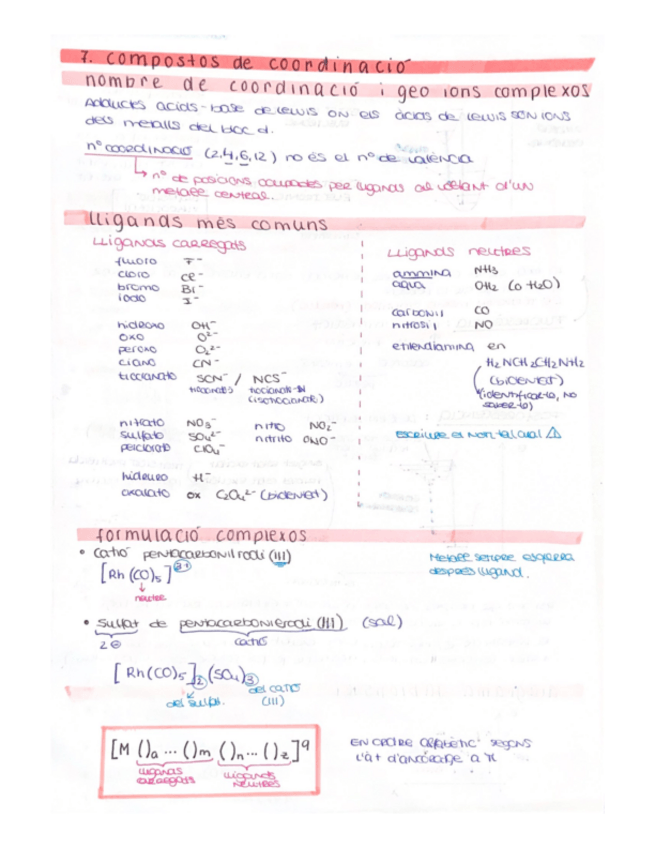 7. compostos de coordinació
nombre de coordinació i geo ions complexos
Adductes àcids-base de Lewis on els àcids de Lewis són ions
dels metalls del bloc d.
nº coordinació (2,4,6,12) no és el nº de valència
↳ nº de posicions ocupades per lligands al voltant d'un
metall central.
lligands més comuns
Lligands carregats
Lligands neutres
fluoro F⁻
cloro Cl⁻
bromo Br⁻
iodo I⁻
hidroxo OH⁻
oxo O²⁻
peroxo O₂²⁻
ciano CN⁻
tiocianato SCN⁻ / NCS⁻
tiocianat-S tiocianat-N
(isotiocianato)
nitrato NO₃⁻ nitro NO₂⁻
sulfato SO₄²⁻ nitrito ONO⁻
perclorato ClO₄⁻
hidruro H⁻
oxalato ox C₂O₄²⁻ (bidentat)
ammina NH₃
aqua OH₂ (o H₂O)
carbonil CO
nitrosil NO
etilendiamina en
H₂NCH₂CH₂NH₂
(bidentat)
(identificar-lo, no
saber-lo)
escriure el nom tal qual ⚠
formulació complexos
• catió pentacarbonilrodi (III)
[Rh(CO)₅]³⁺
↓
neutre
Metall sempre esquerra
després lligand.
• sulfat de pentacarbonilrodi (III) (sal)
2⊖ catió
[Rh(CO)₅]₂(SO₄)₃
del sulfat. del catió
(III)
[M ()a ... ()m ()n ... ()z]q
lligands lligands
carregats neutres
En ordre alfabètic segons
l'àt d'ancoratge a M